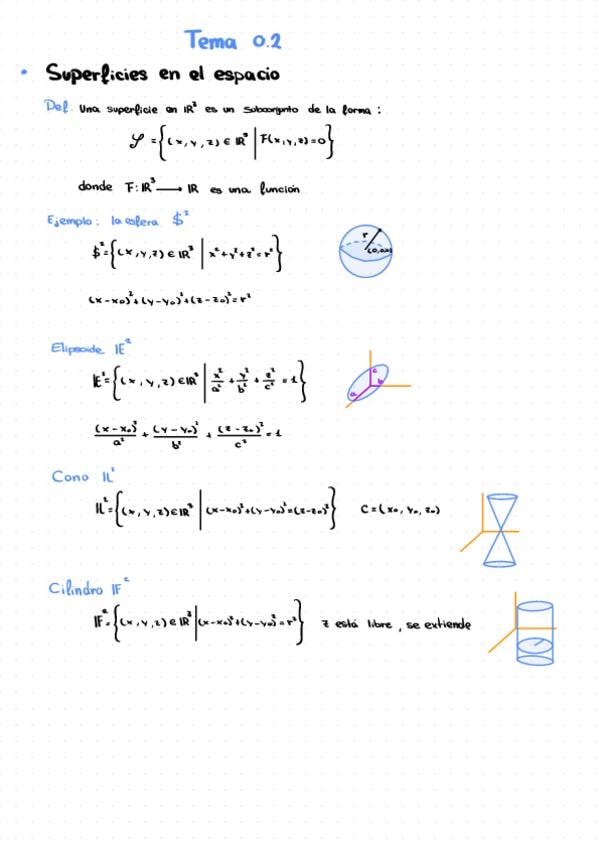 Tema 0.2
• Superficies en el espacio
Def: Una superficie en ℝ³ es un subconjunto de la forma:
𝒮 = {(x, y, z) ∈ ℝ³ | F(x, y, z) = 0}
donde F: ℝ³ → ℝ es una función
Ejemplo: la esfera $²
$² = {(x, y, z) ∈ ℝ³ | x² + y² + z² = r²}
r
(0,0,0)
(x - x₀)² + (y - y₀)² + (z - z₀)² = r²
Elipsoide 𝔼²
𝔼² = {(x, y, z) ∈ ℝ³ | x²/a² + y²/b² + z²/c² = 1}
c
b
a
(x - x₀)²/a² + (y - y₀)²/b² + (z - z₀)²/c² = 1
Cono 𝕃²
𝕃² = {(x, y, z) ∈ ℝ³ | (x - x₀)² + (y - y₀)² = (z - z₀)²} C = (x₀, y₀, z₀)
Cilindro 𝔽²
𝔽² = {(x, y, z) ∈ ℝ³ | (x - x₀)² + (y - y₀)² = r²} z está libre, se extiende